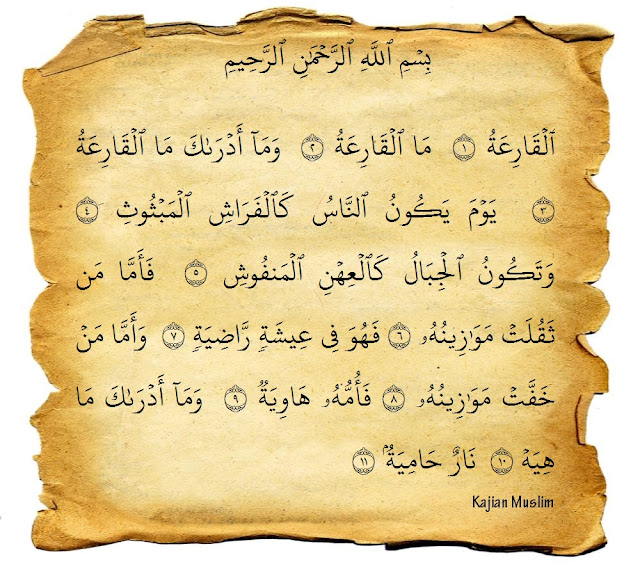 بِسۡمِ ٱللَّهِ ٱلرَّحۡمَٰنِ ٱلرَّحِيمِ
ٱلۡقَارِعَةُ ١ مَا ٱلۡقَارِعَةُ ٢ وَمَآ أَدۡرَىٰكَ مَا ٱلۡقَارِعَةُ
٣ يَوۡمَ يَكُونُ ٱلنَّاسُ كَٱلۡفَرَاشِ ٱلۡمَبۡثُوثِ ٤
وَتَكُونُ ٱلۡجِبَالُ كَٱلۡعِهۡنِ ٱلۡمَنفُوشِ ٥ فَأَمَّا مَن
ثَقُلَتۡ مَوَٰزِينُهُۥ ٦ فَهُوَ فِي عِيشَةٖ رَّاضِيَةٖ ٧ وَأَمَّا مَنۡ
خَفَّتۡ مَوَٰزِينُهُۥ ٨ فَأُمُّهُۥ هَاوِيَةٞ ٩ وَمَآ أَدۡرَىٰكَ مَا
هِيَهۡ ١٠ نَارٌ حَامِيَةُۢ ١١
Kajian Muslim